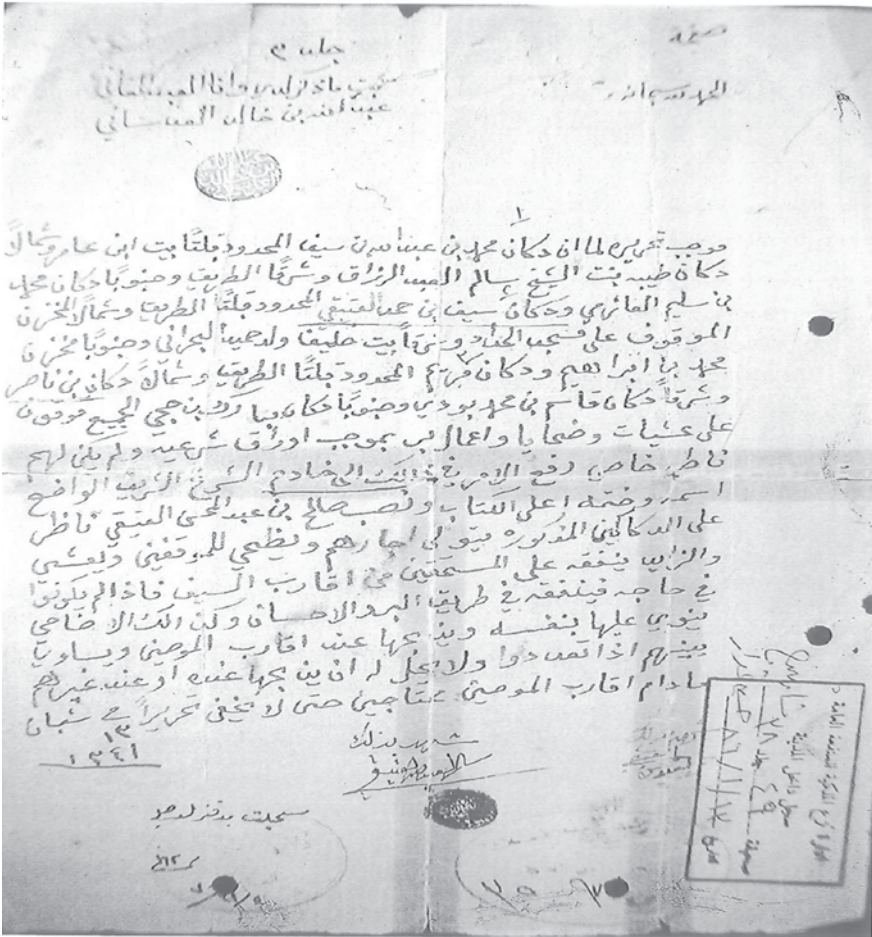 صفحة
جلد ٣
الحمد لله سبحانه
ثبت ما ذكر لدي وانا العبد الفاني
عبد الله بن خالد العدساني
١
موجب تحريره لما ان دكان محمد بن عبدالله بن سيف المحدود قبلتًا بيت ابن عامر وشمالًا
دكان طيبه بنت الشيخ سالم العبد الرزاق وشرقًا الطريق وجنوبًا دكان محمد
بن سليم الفائزمي ودكان سيف بن حمد العتيقي المحدود قبلتًا الطريق وشمالًا المخزن
الموقوف على مسجد الحداد وشرقًا بيت خليفه ولد حميد البحراني وجنوبًا مخزن
محمد بن ابراهيم ودكان مريم المحدود قبلتًا الطريق وشمالًا دكان بن ناصر
وشرقًا دكان قاسم بن محمد بودي وجنوبًا دكان بن حجي الجميع موقوف
على عشيات وضحايا واعمال بر بموجب اوراق شرعيه ولم يكن لهم
ناظر خاص رفع الامر في ذلك الى خادم الشرع الشريف الواضح
اسمه وختمه اعلى الكتاب ونصب صالح بن عبد المحسن العتيقي ناظر
على الدكاكين المذكوره يتولى اجارهم ويضحي للموقفين ويعشي
والزايد ينفقه على المستحقين من اقارب السيف فاذا لم يكونوا
في حاجه فينفقه في طريق البر والاحسان وكن الك الاضاحي
ينوي عليها بنفسه ويذبحها عند اقارب الموصين ويساوي
بينهم اذا تعددوا ولا يحل له ان يذبحها عنده او عند غيرهم
مادام اقارب الموصين محتاجين حتى لا يخفى تحريرًا في شبان
١٣
١٣٤١
شهد بذلك
سجلت بدفتر
ادارة نزع الملكية للمنفعة العامة
سجل داخل المدينة
صحيفة ٤٩ جلد ٢٨
تاريخ ٨٦/١/١٢